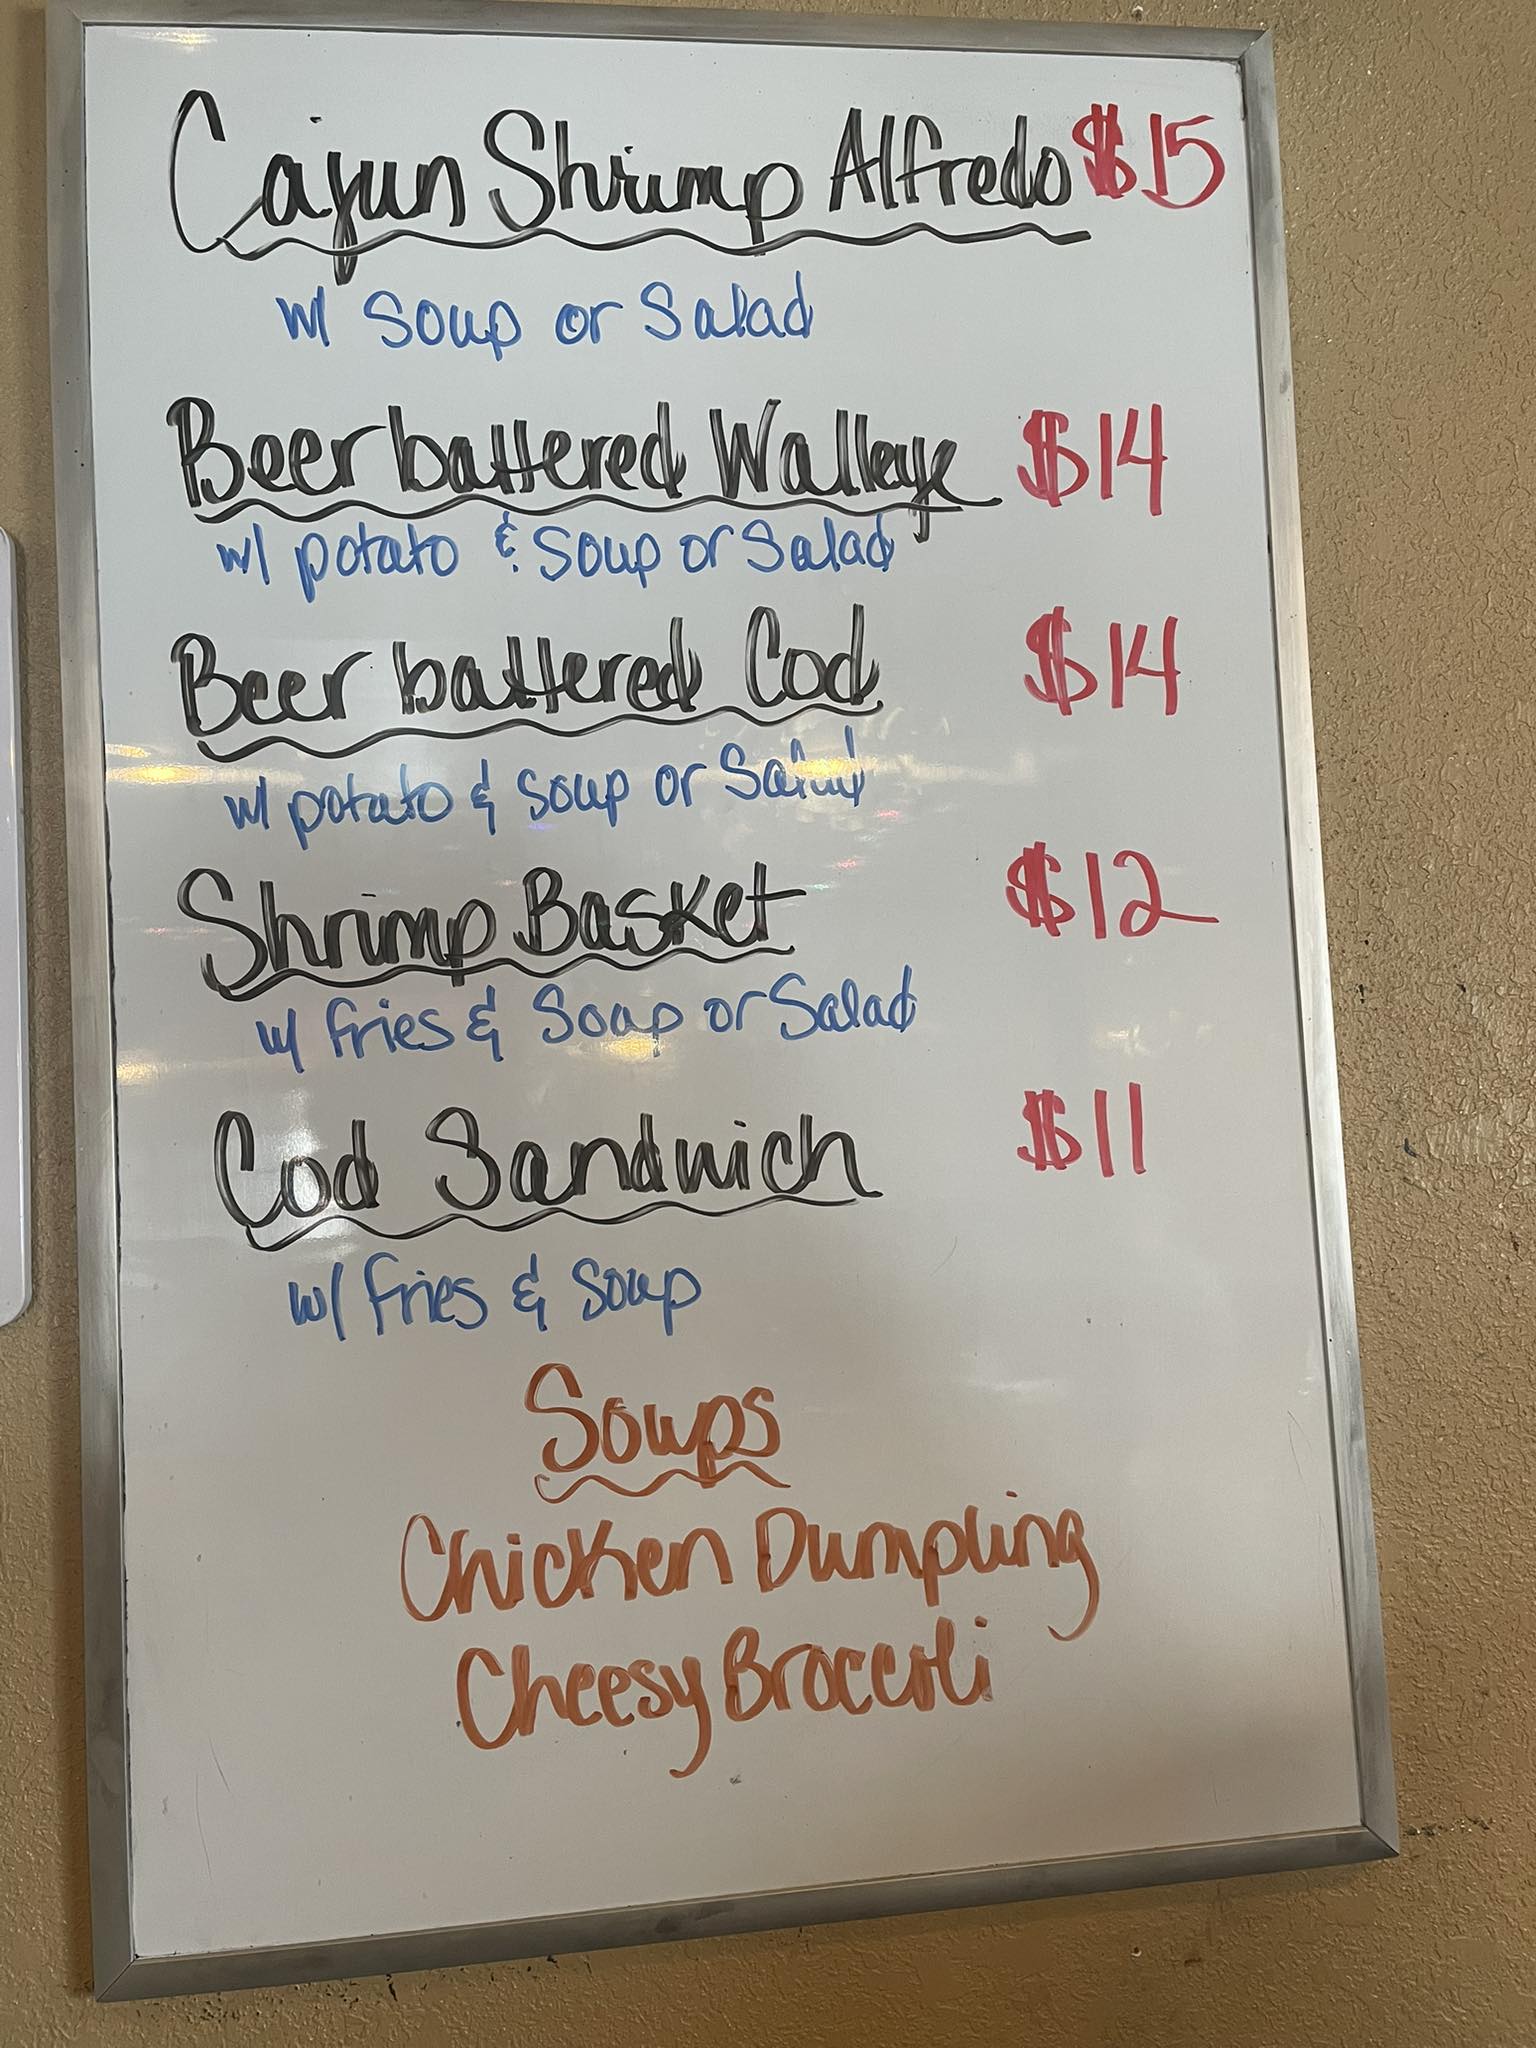 Cajun Shrimp Alfredo $15
w/ Soup or Salad
Beer battered Walleye $14
w/ potato & Soup or Salad
Beer battered Cod $14
w/ potato & soup or Salad
Shrimp Basket $12
w/ fries & Soup or Salad
Cod Sandwich $11
w/ fries & soup
Soups
Chicken Dumpling
Cheesy Broccoli